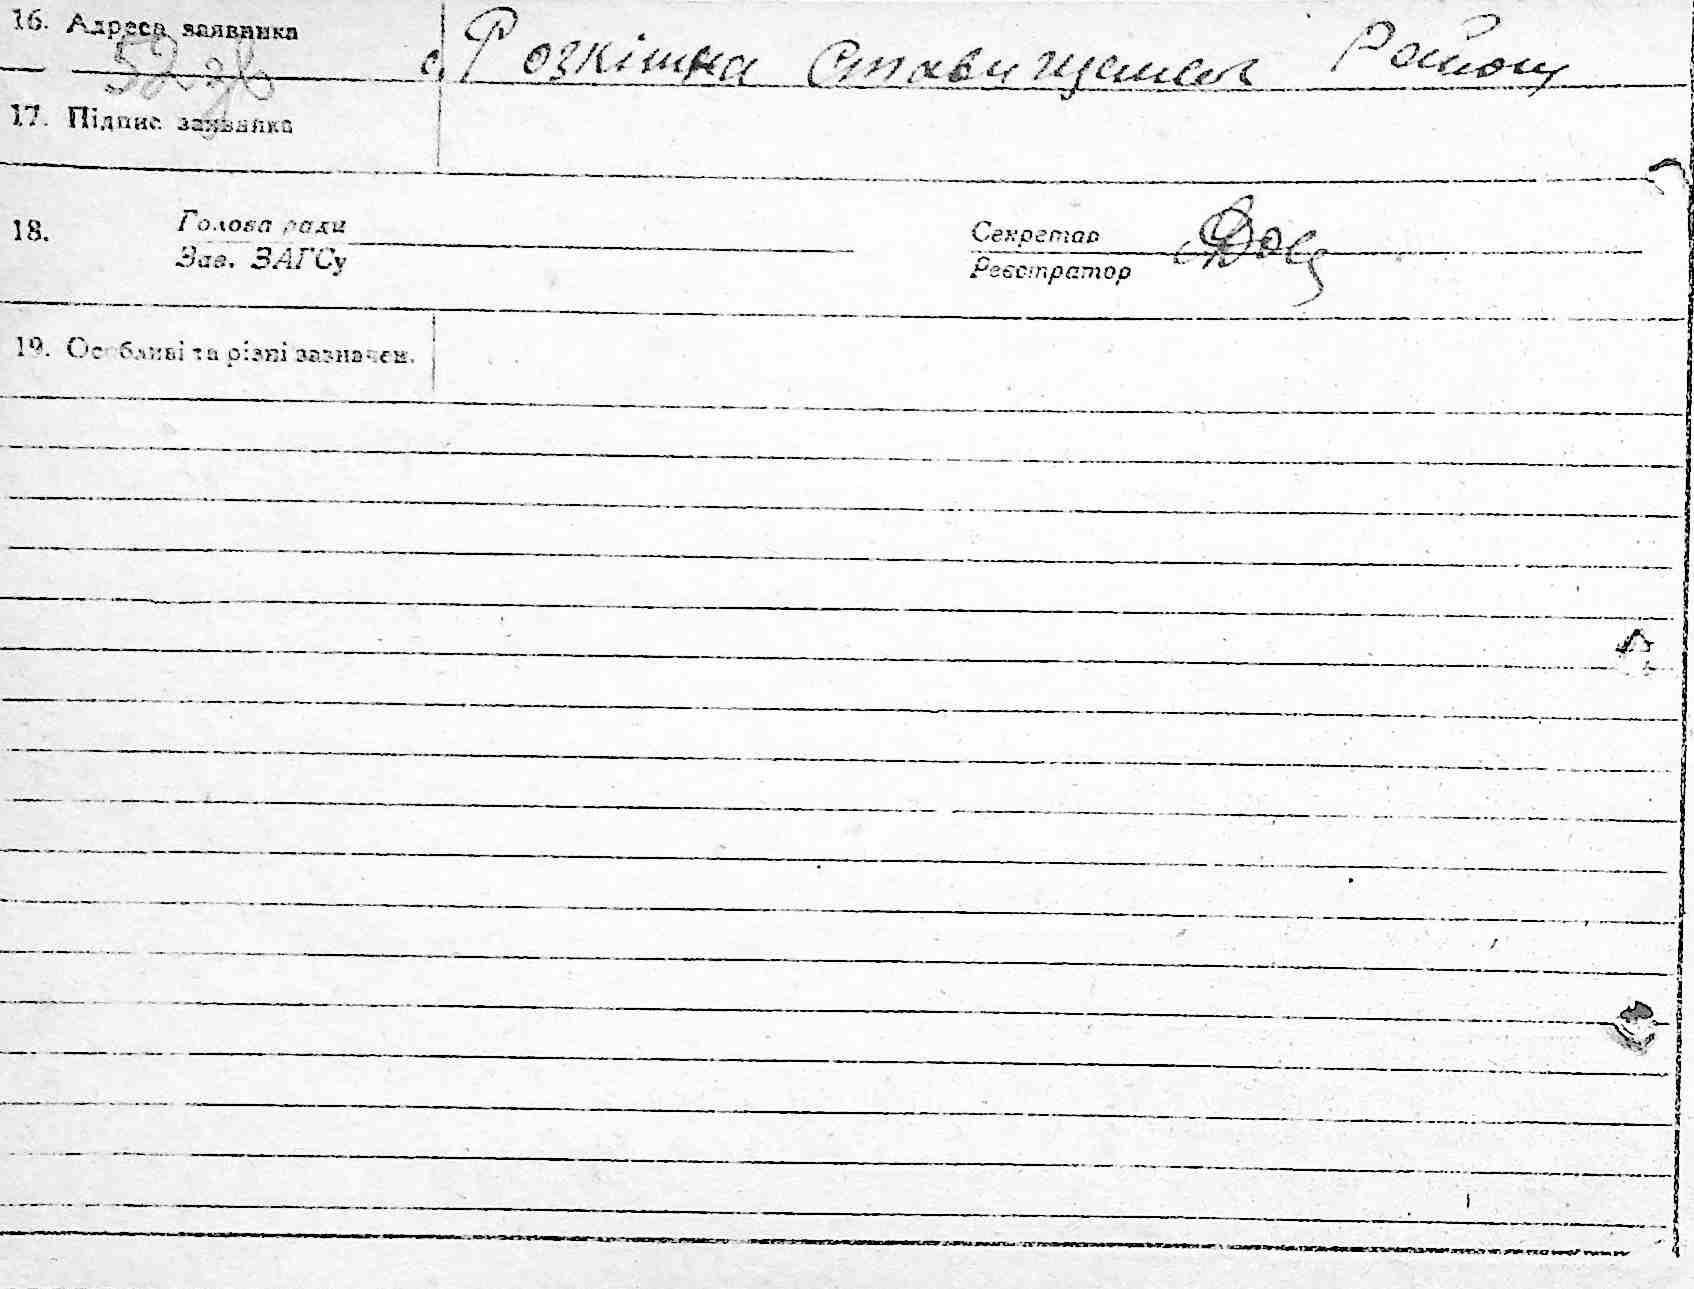 16. Адреса заявника с. Розкішна Ставищенськ Району
52
17. Підпис заявника
18. Голова ради Секретар
Зав. ЗАГСу Реєстратор
19. Особливі та різні зазначен.